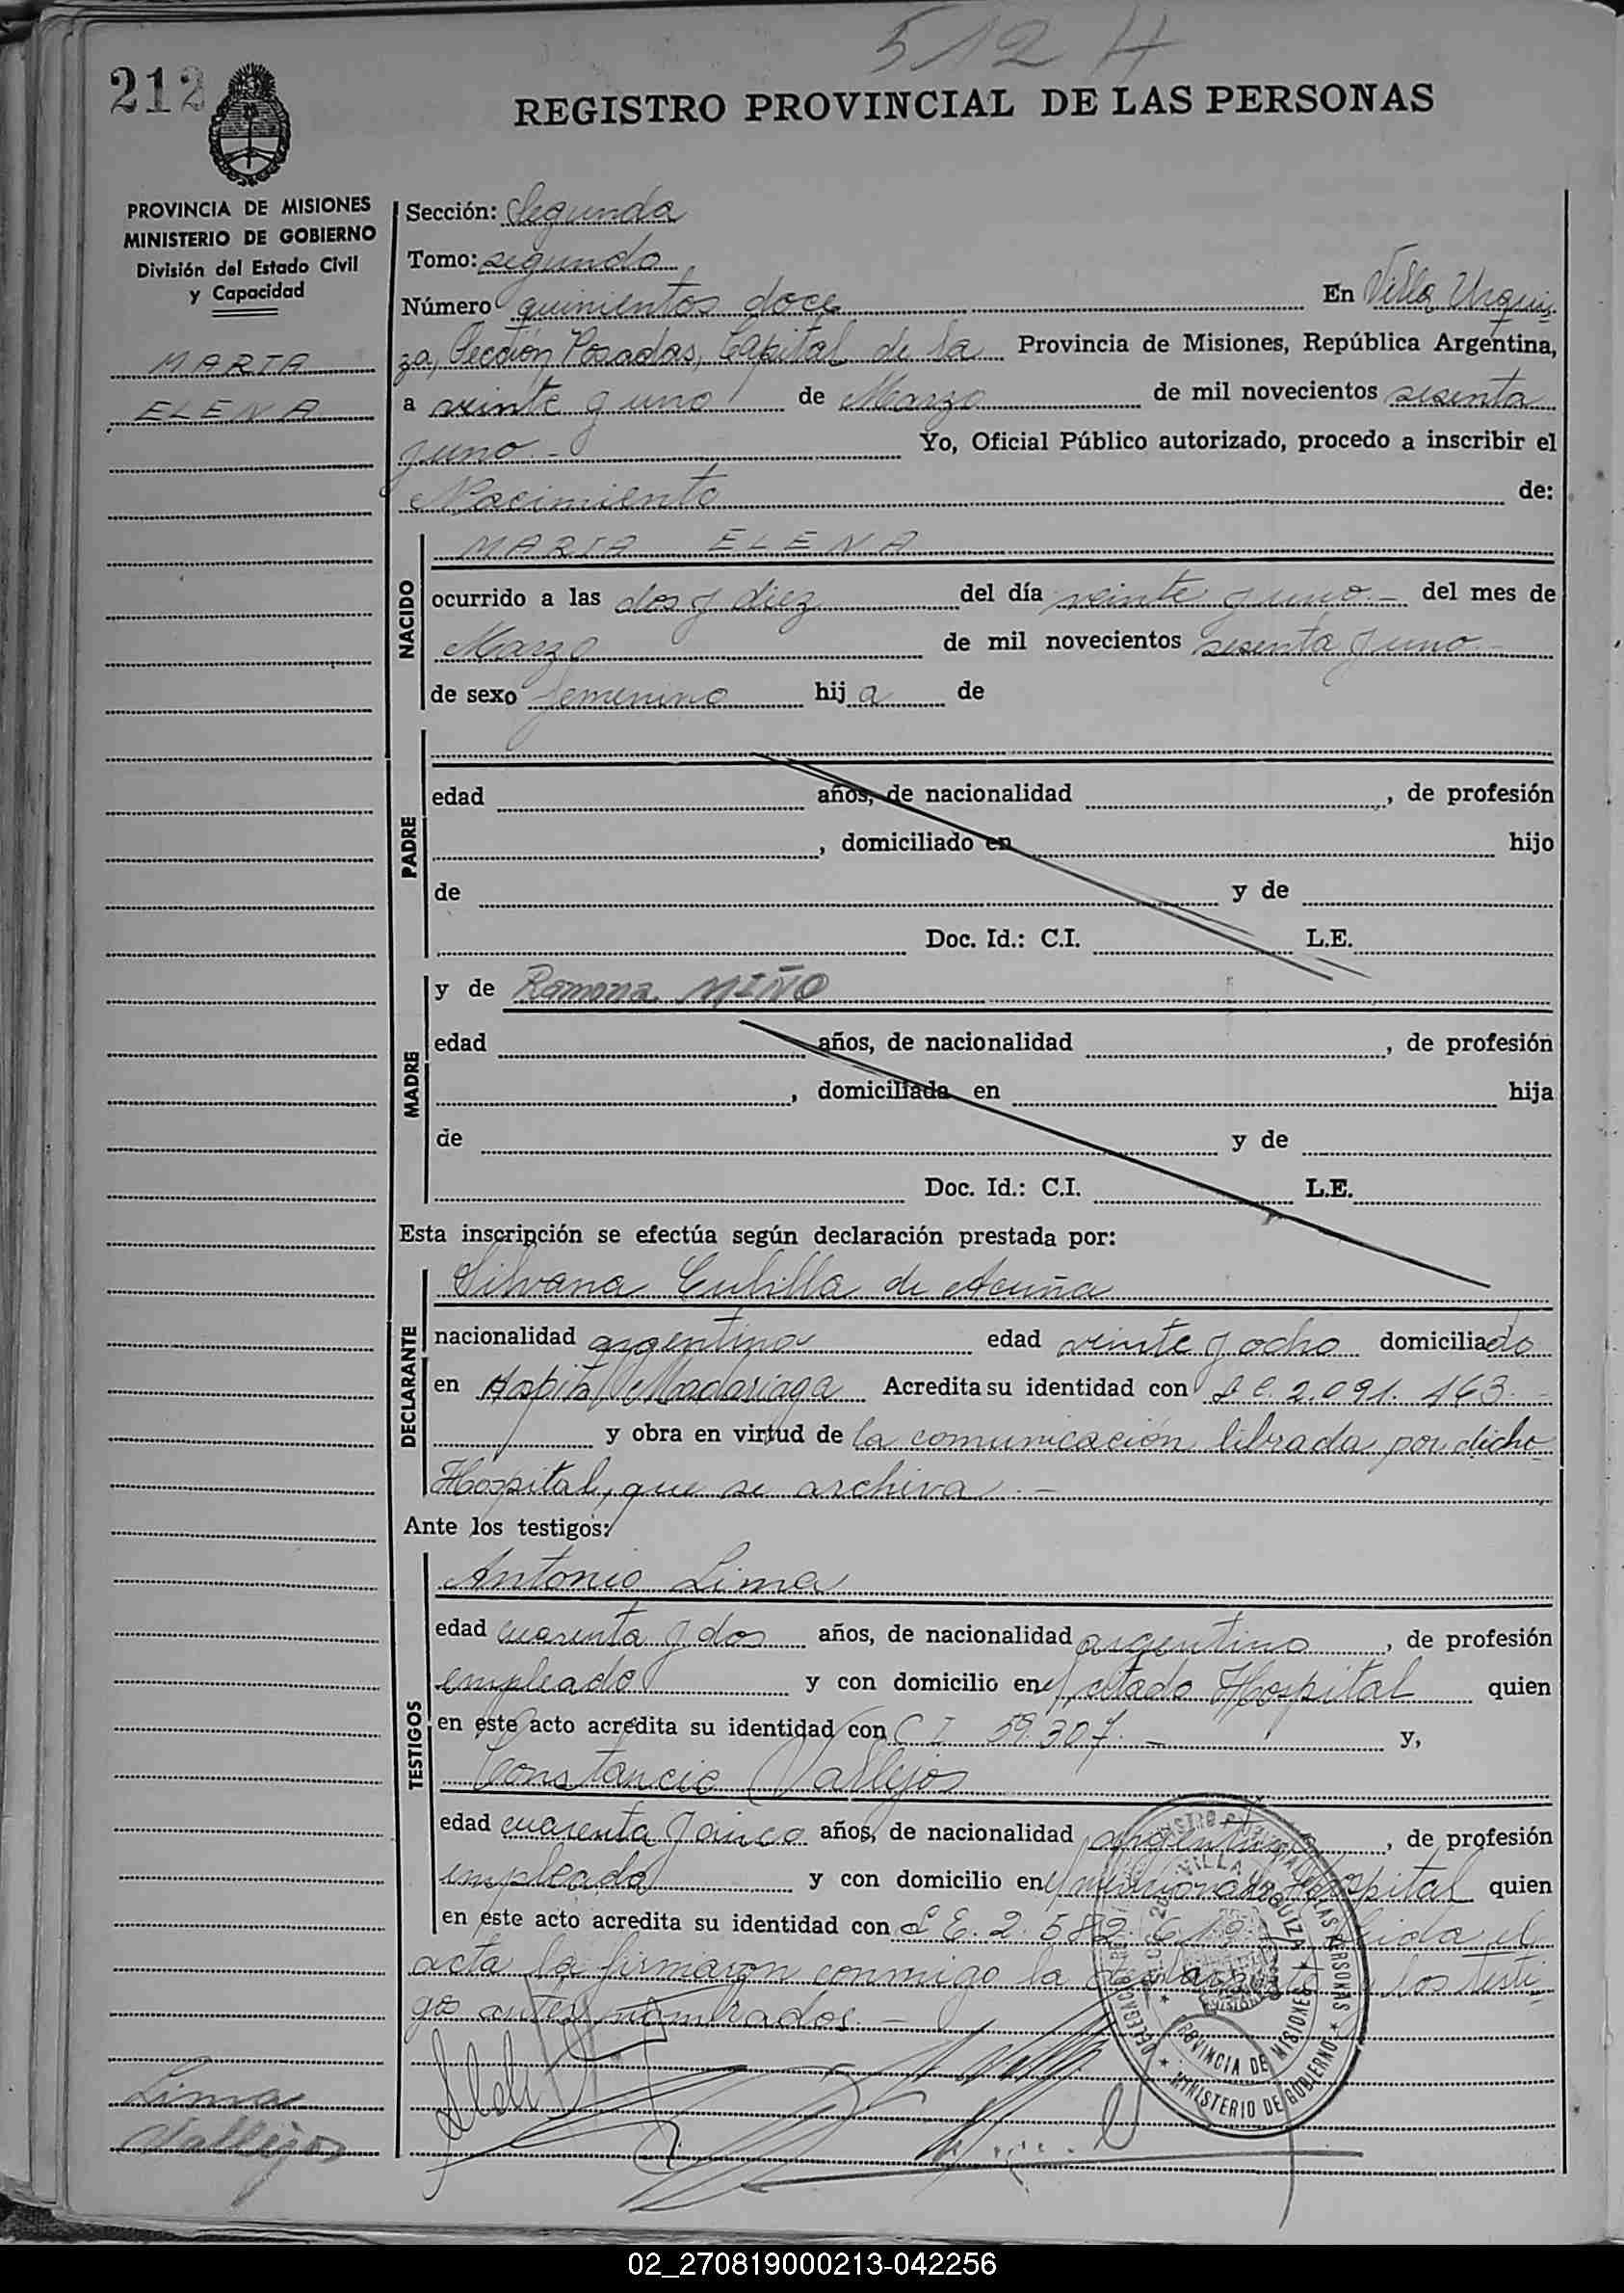 512 H
212
REGISTRO PROVINCIAL DE LAS PERSONAS
PROVINCIA DE MISIONES
MINISTERIO DE GOBIERNO
División del Estado Civil
y Capacidad
MARIA
ELENA
Sección: Segunda
Tomo: segundo
Número quinientos doce En Villa Urqui
za, Sección Posadas, Capital de la Provincia de Misiones, República Argentina,
a veinte y uno de Marzo de mil novecientos sesenta
y uno.- Yo, Oficial Público autorizado, procedo a inscribir el
Nacimiento de:
NACIDO
MARIA ELENA
ocurrido a las dos y diez del día veinte y uno.- del mes de
Marzo de mil novecientos sesenta y uno.-
de sexo femenino hij a de
PADRE
edad años, de nacionalidad , de profesión
, domiciliado en hijo
de y de
Doc. Id.: C.I. L.E.
MADRE
y de Ramona MIÑO
edad años, de nacionalidad , de profesión
, domiciliada en hija
de y de
Doc. Id.: C.I. L.E.
Esta inscripción se efectúa según declaración prestada por:
DECLARANTE
Silvana Cubilla de Acuña
nacionalidad argentina edad veinte y ocho domiciliado
en Hospital Madariaga Acredita su identidad con L C. 2.091.163.-
y obra en virtud de la comunicación librada por dicho
Hospital, que se archiva.-
Ante los testigos:
TESTIGOS
Antonio Lima
edad cuarenta y dos años, de nacionalidad argentino, de profesión
empleado y con domicilio en el citado Hospital quien
en este acto acredita su identidad con C I 59.307.- y,
Constancio Vallejos
edad cuarenta y cinco años, de nacionalidad argentino, de profesión
empleado y con domicilio en el mencionado Hospital quien
en este acto acredita su identidad con L E. 2.582. Leida el
acta la firmaron conmigo la declarante y los testi
gos antes nombrados.-
VILLA URQUIZA
PROVINCIA DE MISIONES
MINISTERIO DE GOBIERNO
Lima
Vallejos
02_270819000213-042256